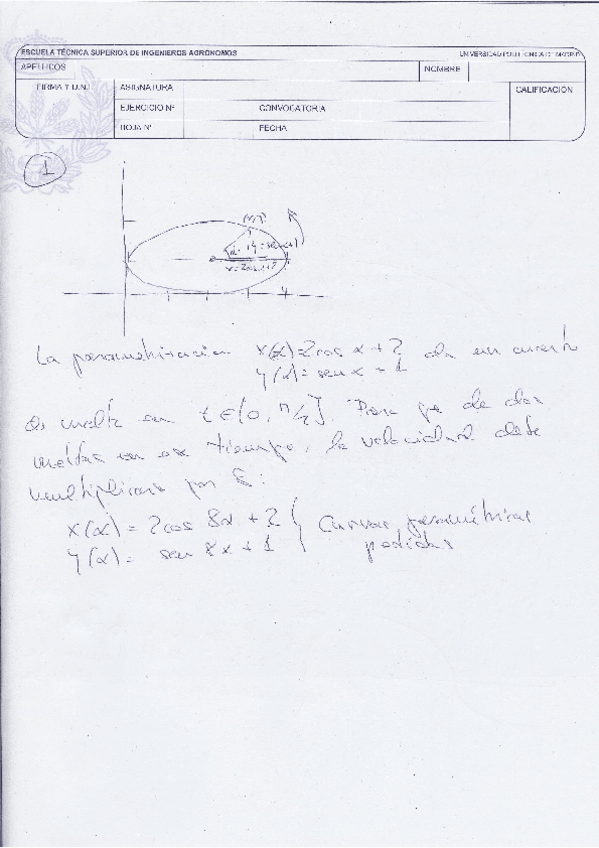 ESCUELA TÉCNICA SUPERIOR DE INGENIEROS AGRÓNOMOS
UNIVERSIDAD POLITECNICA DE MADRID
APELLIDOS
NOMBRE
FIRMA Y D.N.I
ASIGNATURA
CALIFICACIÓN
EJERCICIO Nº
CONVOCATORIA
HOJA Nº
FECHA
1
La parametrizacion x(α)=2cos α+2 da un cuarto
y(α)=sen α+1
de vuelta en t∈[0, π/2]. Para que de dos
vueltas en ese tiempo, la velocidad debe
multiplicarse por 8:
x(α) = 2cos 8α + 2 } Curvas paramétricas
y(α) = sen 8α + 1 pedidas